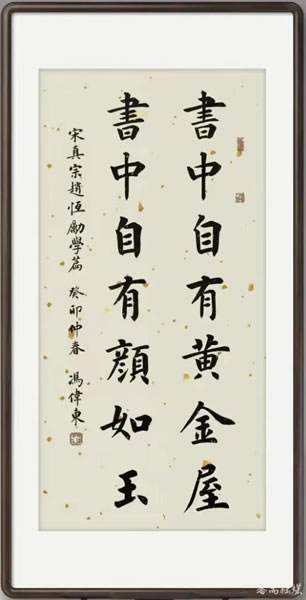 書中自有黄金屋
書中自有顔如玉
宋真宗趙恒勵學篇 癸卯仲春 馮偉東